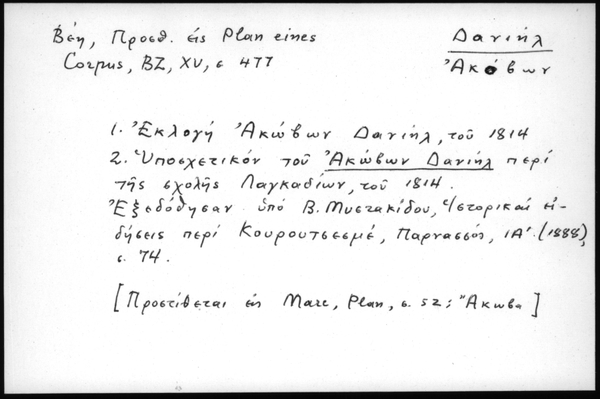 Βέη, Προσθ. εἰς Plan eines
Corpus, BZ, XV, σ 477
Δανιήλ
Ἀκόβων
1. Ἐκλογή Ἀκώβων Δανιήλ, τοῦ 1814
2. Ὑποσχετικόν τοῦ Ἀκώβων Δανιήλ περί
τῆς σχολῆς Λαγκαδίων, τοῦ 1814.
Ἐξεδόθησαν ὑπό Β. Μυστακίδου, Ἱστορικαί εἰ-
δήσεις περί Κουρουτσεσμέ, Παρνασσός, ΙΑ΄. (1888),
σ. 74.
[Προστίθεται εἰς Marc, Plan, σ. 52: Ἄκωβα]